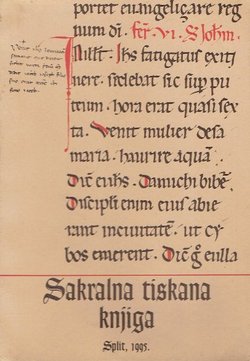 portet euangeliçare reg
num dī. fer. vi. S Johm.
In illt. Ihs fatigatus ex iti
nere. sedebat sic sup̄ pu
teum. hora erat quasi sex
ta. Venit mulier de sa
maria. haurire aquā.
Dic̄ ei ihs. Da michi bibē.
Discipli enim eius abie
rant in ciuitatē. ut ci
bos emerent. Dic̄ gͦ ei illa
Sakralna tiskana
knjiga
Split, 1995.